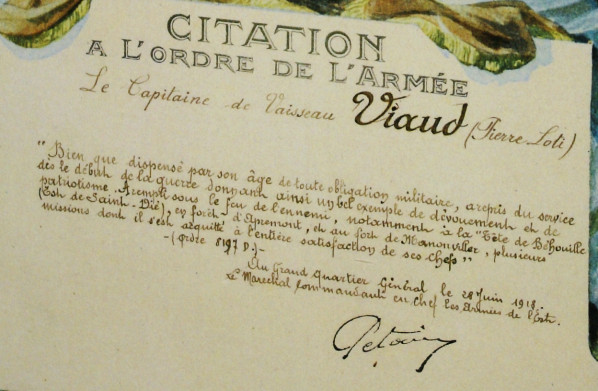 CITATION
A L'ORDRE DE L'ARMÉE
Le Capitaine de Vaisseau Viaud (Pierre Loti)
"Bien que dispensé par son âge de toute obligation militaire, a repris du service
dès le début de la guerre donnant ainsi un bel exemple de dévouement et de
patriotisme. A rempli sous le feu de l'ennemi, notamment à la "Tête de Béhouille
(Est de Saint-Dié), en forêt d'Apremont, et au fort de Manonviller, plusieurs
missions dont il s'est acquitté à l'entière satisfaction de ses chefs"
-(ordre 8197 D.)-
Au Grand Quartier Général le 28 Juin 1918.
Le Maréchal Commandant en Chef les Armées de l'Est.
Petain